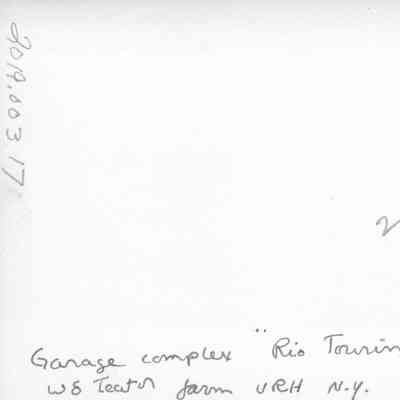 2019.003.17
Garage complex "Rio Tourin
W8 Teator farm URH N.Y.